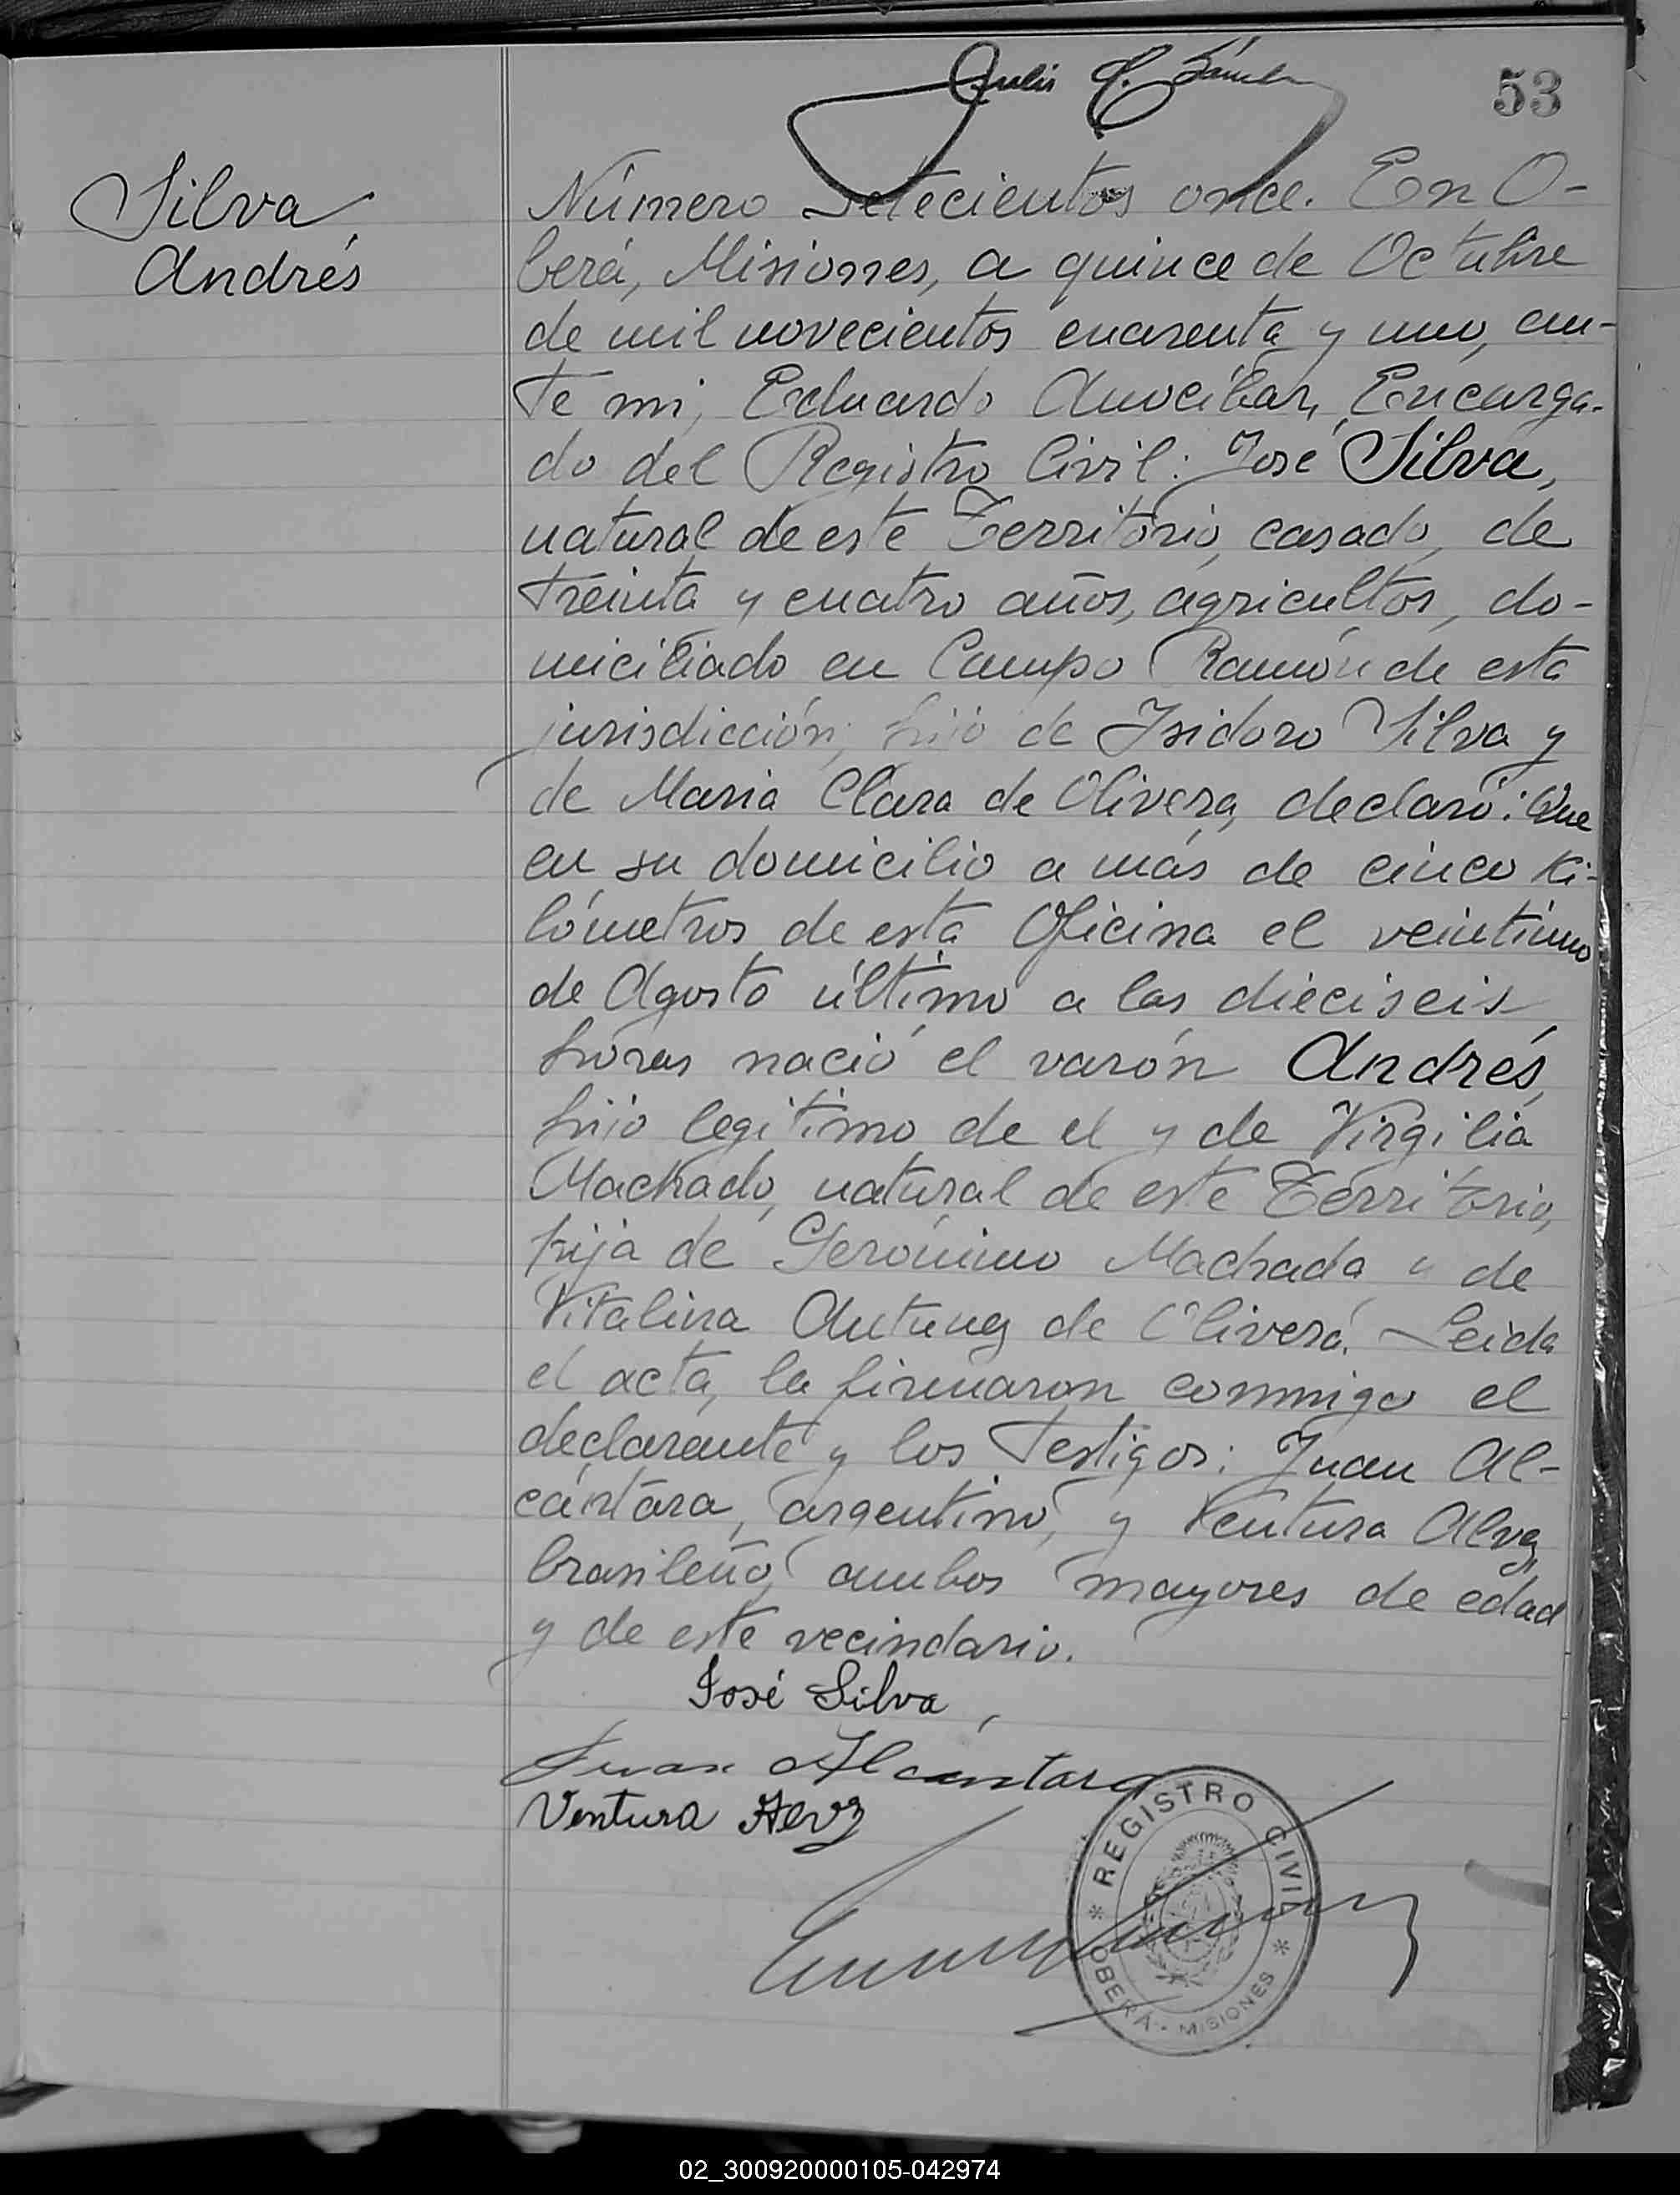 53
Silva
Andrés
Número Setecientos once. En O-
berá, Misiones, a quince de Octubre
de mil novecientos cuarenta y uno, an-
te mi, Eduardo Anocibar, Encarga-
do del Registro Civil: José Silva,
natural de este Territorio, casado, de
treinta y cuatro años, agricultor, do-
miciliado en Campo Ramón de esta
jurisdicción, hijo de Isidoro Silva y
de Maria Clara de Olivera, declaró: Que
en su domicilio a más de cinco ki-
lómetros de esta Oficina el veintiuno
de Agosto último a las dieciseis
horas nació el varón Andrés,
hijo legitimo de el y de Virgilia
Machado, natural de este Territorio,
hija de Gerónimo Machado y de
Vitalina Antunez de Olivera. Leida
el acta, la firmaron conmigo el
declarante y los testigos: Juan Al-
cántara, argentino, y Ventura Alvz,
brasileño, ambos mayores de edad
y de este vecindario.
José Silva
Juan Alcantara
Ventura Alvz
REGISTRO CIVIL
OBERÁ - MISIONES
02_300920000105-042974